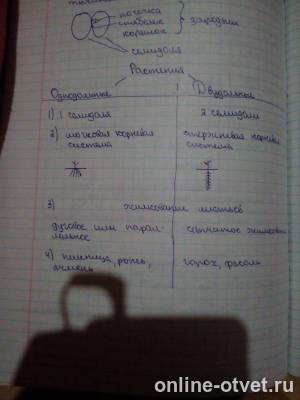 почечка
стебелек
корешок
зародыш
семядоля
Растения
Однодольные
Двудольные
1) 1 семядоля
2 семядоли
2) мочковая корневая
система
стержневая корневая
система
3) жилкование листьев
дуговое или парал-
лельное
сетчатое жилкование
4) пшеница, рожь,
ячмень
горох, фасоль
online-otvet.ru